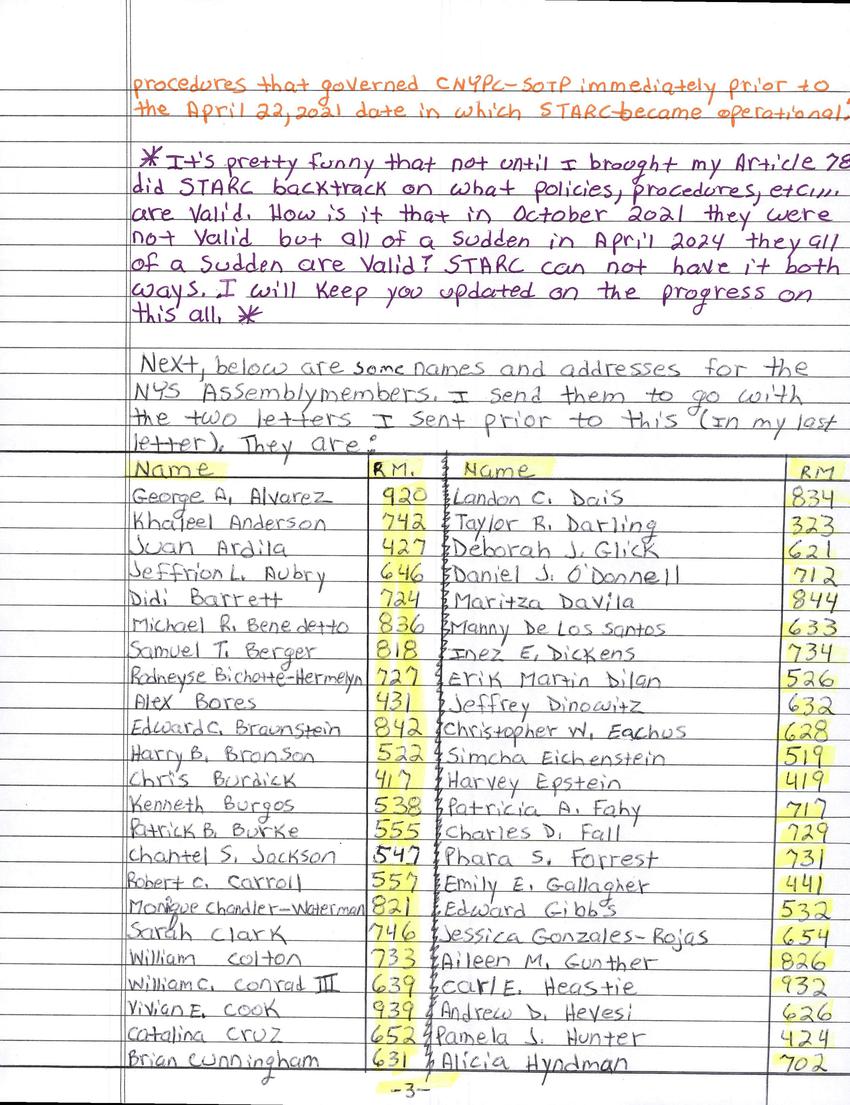 procedures that governed CNYPC-SOTP immediately prior to
the April 22, 2021 date in which STARC became operational.
* It's pretty funny that not until I brought my Article 78
did STARC backtrack on what policies, procedures, etc....
are valid. How is it that in October 2021 they were
not valid but all of a sudden in April 2024 they all
of a sudden are valid? STARC can not have it both
ways. I will keep you updated on the progress on
this all. *
Next, below are some names and addresses for the
NYS Assemblymembers. I send them to go with
the two letters I sent prior to this (In my last
letter). They are:
Name RM. Name RM
George A. Alvarez 920 Landon C. Dais 834
Khaleel Anderson 742 Taylor R. Darling 323
Juan Ardila 427 Deborah J. Glick 621
Jeffrion L. Aubry 646 Daniel J. O'Donnell 712
Didi Barrett 724 Maritza Davila 844
Michael R. Benedetto 836 Manny De Los Santos 633
Samuel T. Berger 818 Inez E. Dickens 734
Rodneyse Bichotte-Hermelyn 727 Erik Martin Dilan 526
Alex Bores 431 Jeffrey Dinowitz 632
Edward C. Braunstein 842 Christopher W. Eachus 628
Harry B. Bronson 522 Simcha Eichenstein 519
Chris Burdick 417 Harvey Epstein 419
Kenneth Burgos 538 Patricia A. Fahy 717
Patrick B. Burke 555 Charles D. Fall 729
Chantel S. Jackson 547 Phara S. Forrest 731
Robert C. Carroll 557 Emily E. Gallagher 441
Monique Chandler-Waterman 821 Edward Gibbs 532
Sarah Clark 746 Jessica Gonzales-Rojas 654
William Colton 733 Aileen M. Gunther 826
William C. Conrad III 639 Carl E. Heastie 932
Vivian E. Cook 939 Andrew D. Hevesi 626
Catalina Cruz 652 Pamela J. Hunter 424
Brian Cunningham 631 Alicia Hyndman 702
-3-